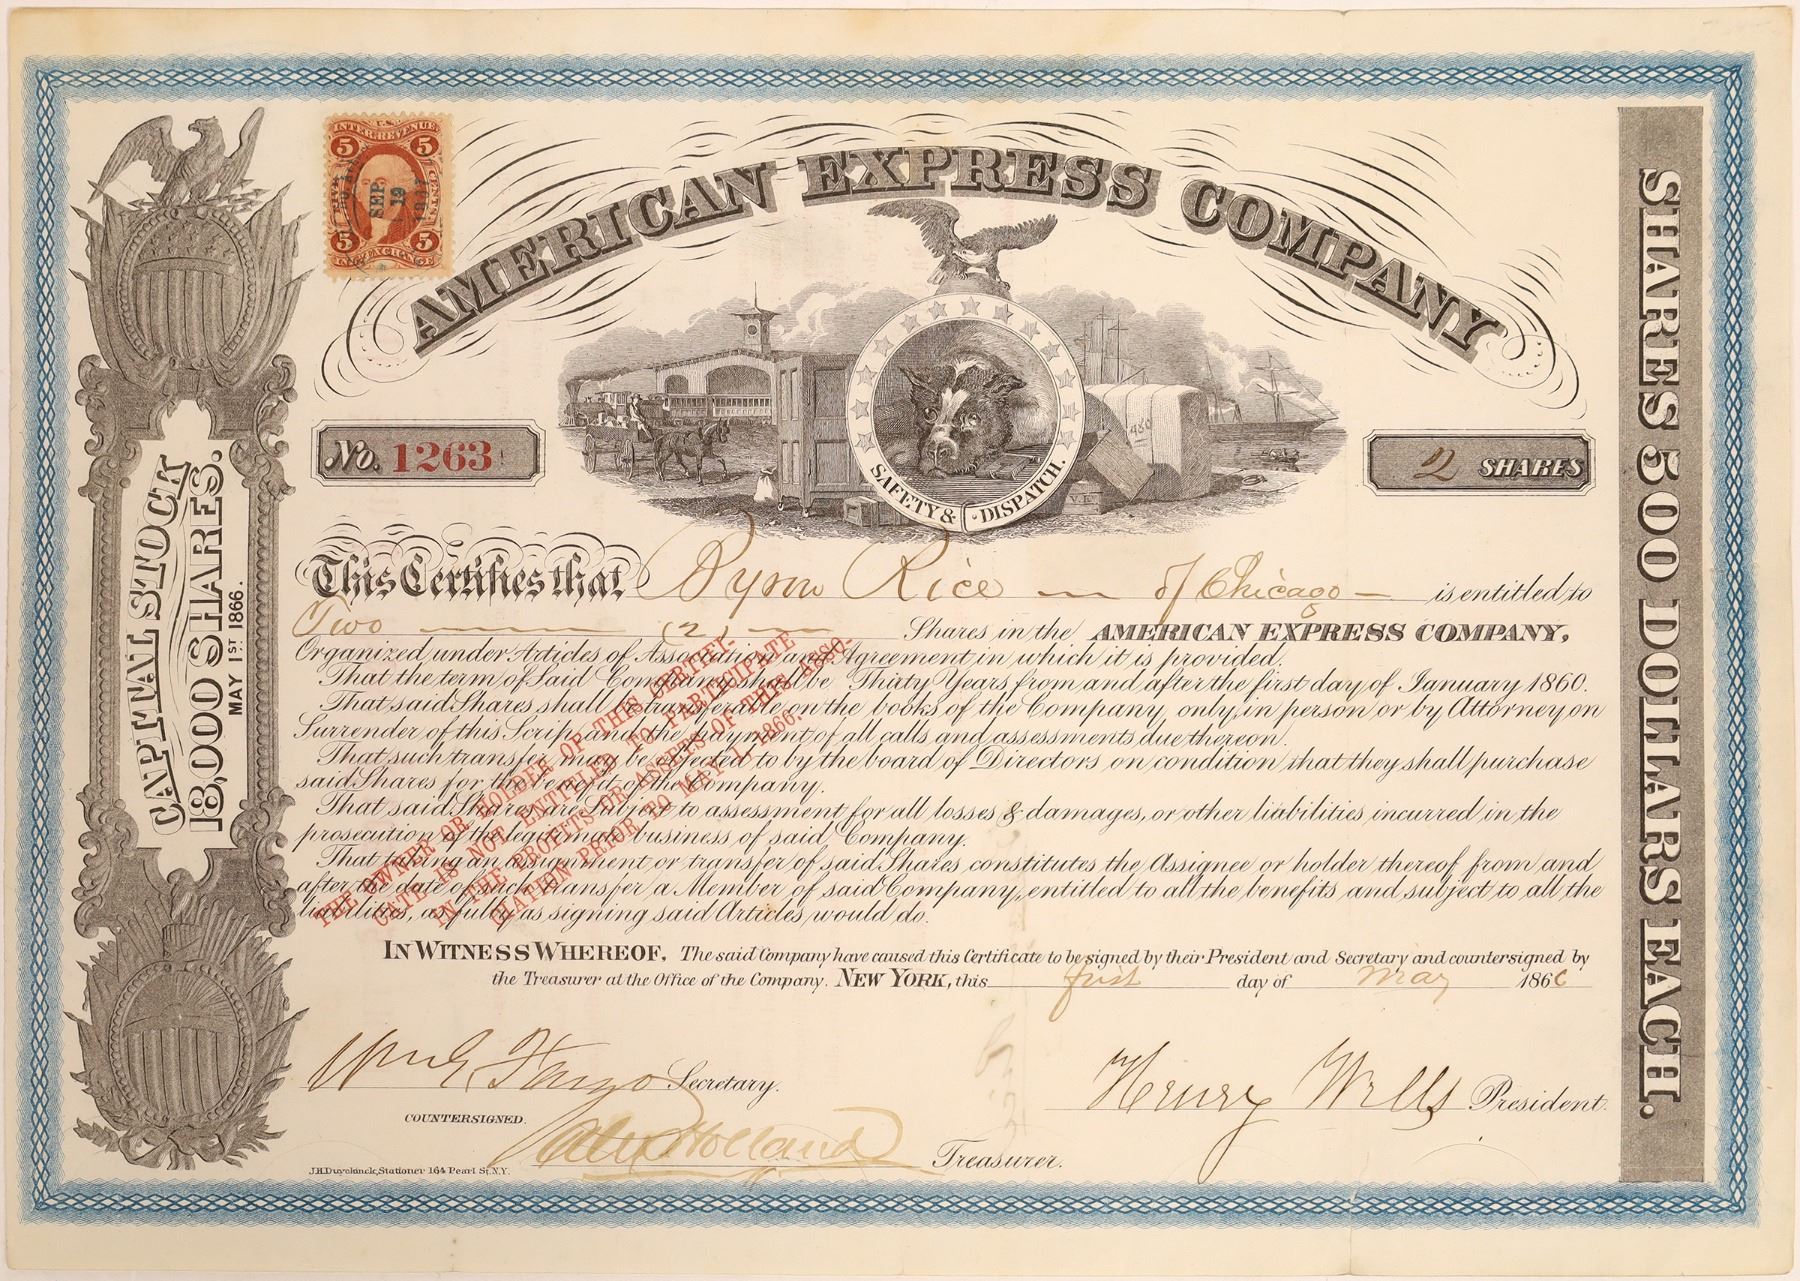 U.S.
INTER. REVENUE
5 5
FIVE CENTS
SEP
19
5 5
AMERICAN EXPRESS COMPANY
No. 1263
480
SAFETY & DISPATCH.
2 SHARES
CAPITAL STOCK
18,000 SHARES.
MAY 1ST 1866.
SHARES 500 DOLLARS EACH.
This Certifies that Byron Rice of Chicago is entitled to
Two (2) Shares in the AMERICAN EXPRESS COMPANY,
Organized under Articles of Association and Agreement in which it is provided.
That the term of said Company shall be Thirty Years from and after the first day of January 1860.
That said Shares shall be transferable on the books of the Company only, in person or by Attorney on
Surrender of this Scrip, and the payment of all calls and assessments due thereon.
That such transfer may be objected to by the board of Directors on condition that they shall purchase
said Shares for the benefit of the Company.
That said Shares are Subject to assessment for all losses & damages, or other liabilities incurred in the
prosecution of the legitimate business of said Company.
That taking an assignment or transfer of said Shares constitutes the Assignee or holder thereof from and
after the date of such transfer a Member of said Company, entitled to all the benefits and subject to all the
liabilities, as fully as signing said Articles, would do.
THE OWNER OR HOLDER OF THIS CERTIFI-
CATE IS NOT ENTITLED TO PARTICIPATE
IN THE PROFITS OR ASSETS OF THIS ASSO-
CIATION PRIOR TO MAY 1, 1866.
IN WITNESS WHEREOF, The said Company have caused this Certificate to be signed by their President and Secretary and countersigned by
the Treasurer at the Office of the Company. NEW YORK, this first day of May 1866
Wm G Fargo Secretary.
Henry Wells President.
COUNTERSIGNED.
Alex Holland Treasurer.
J.H. Duyckinck, Stationer 164 Pearl St. N.Y.